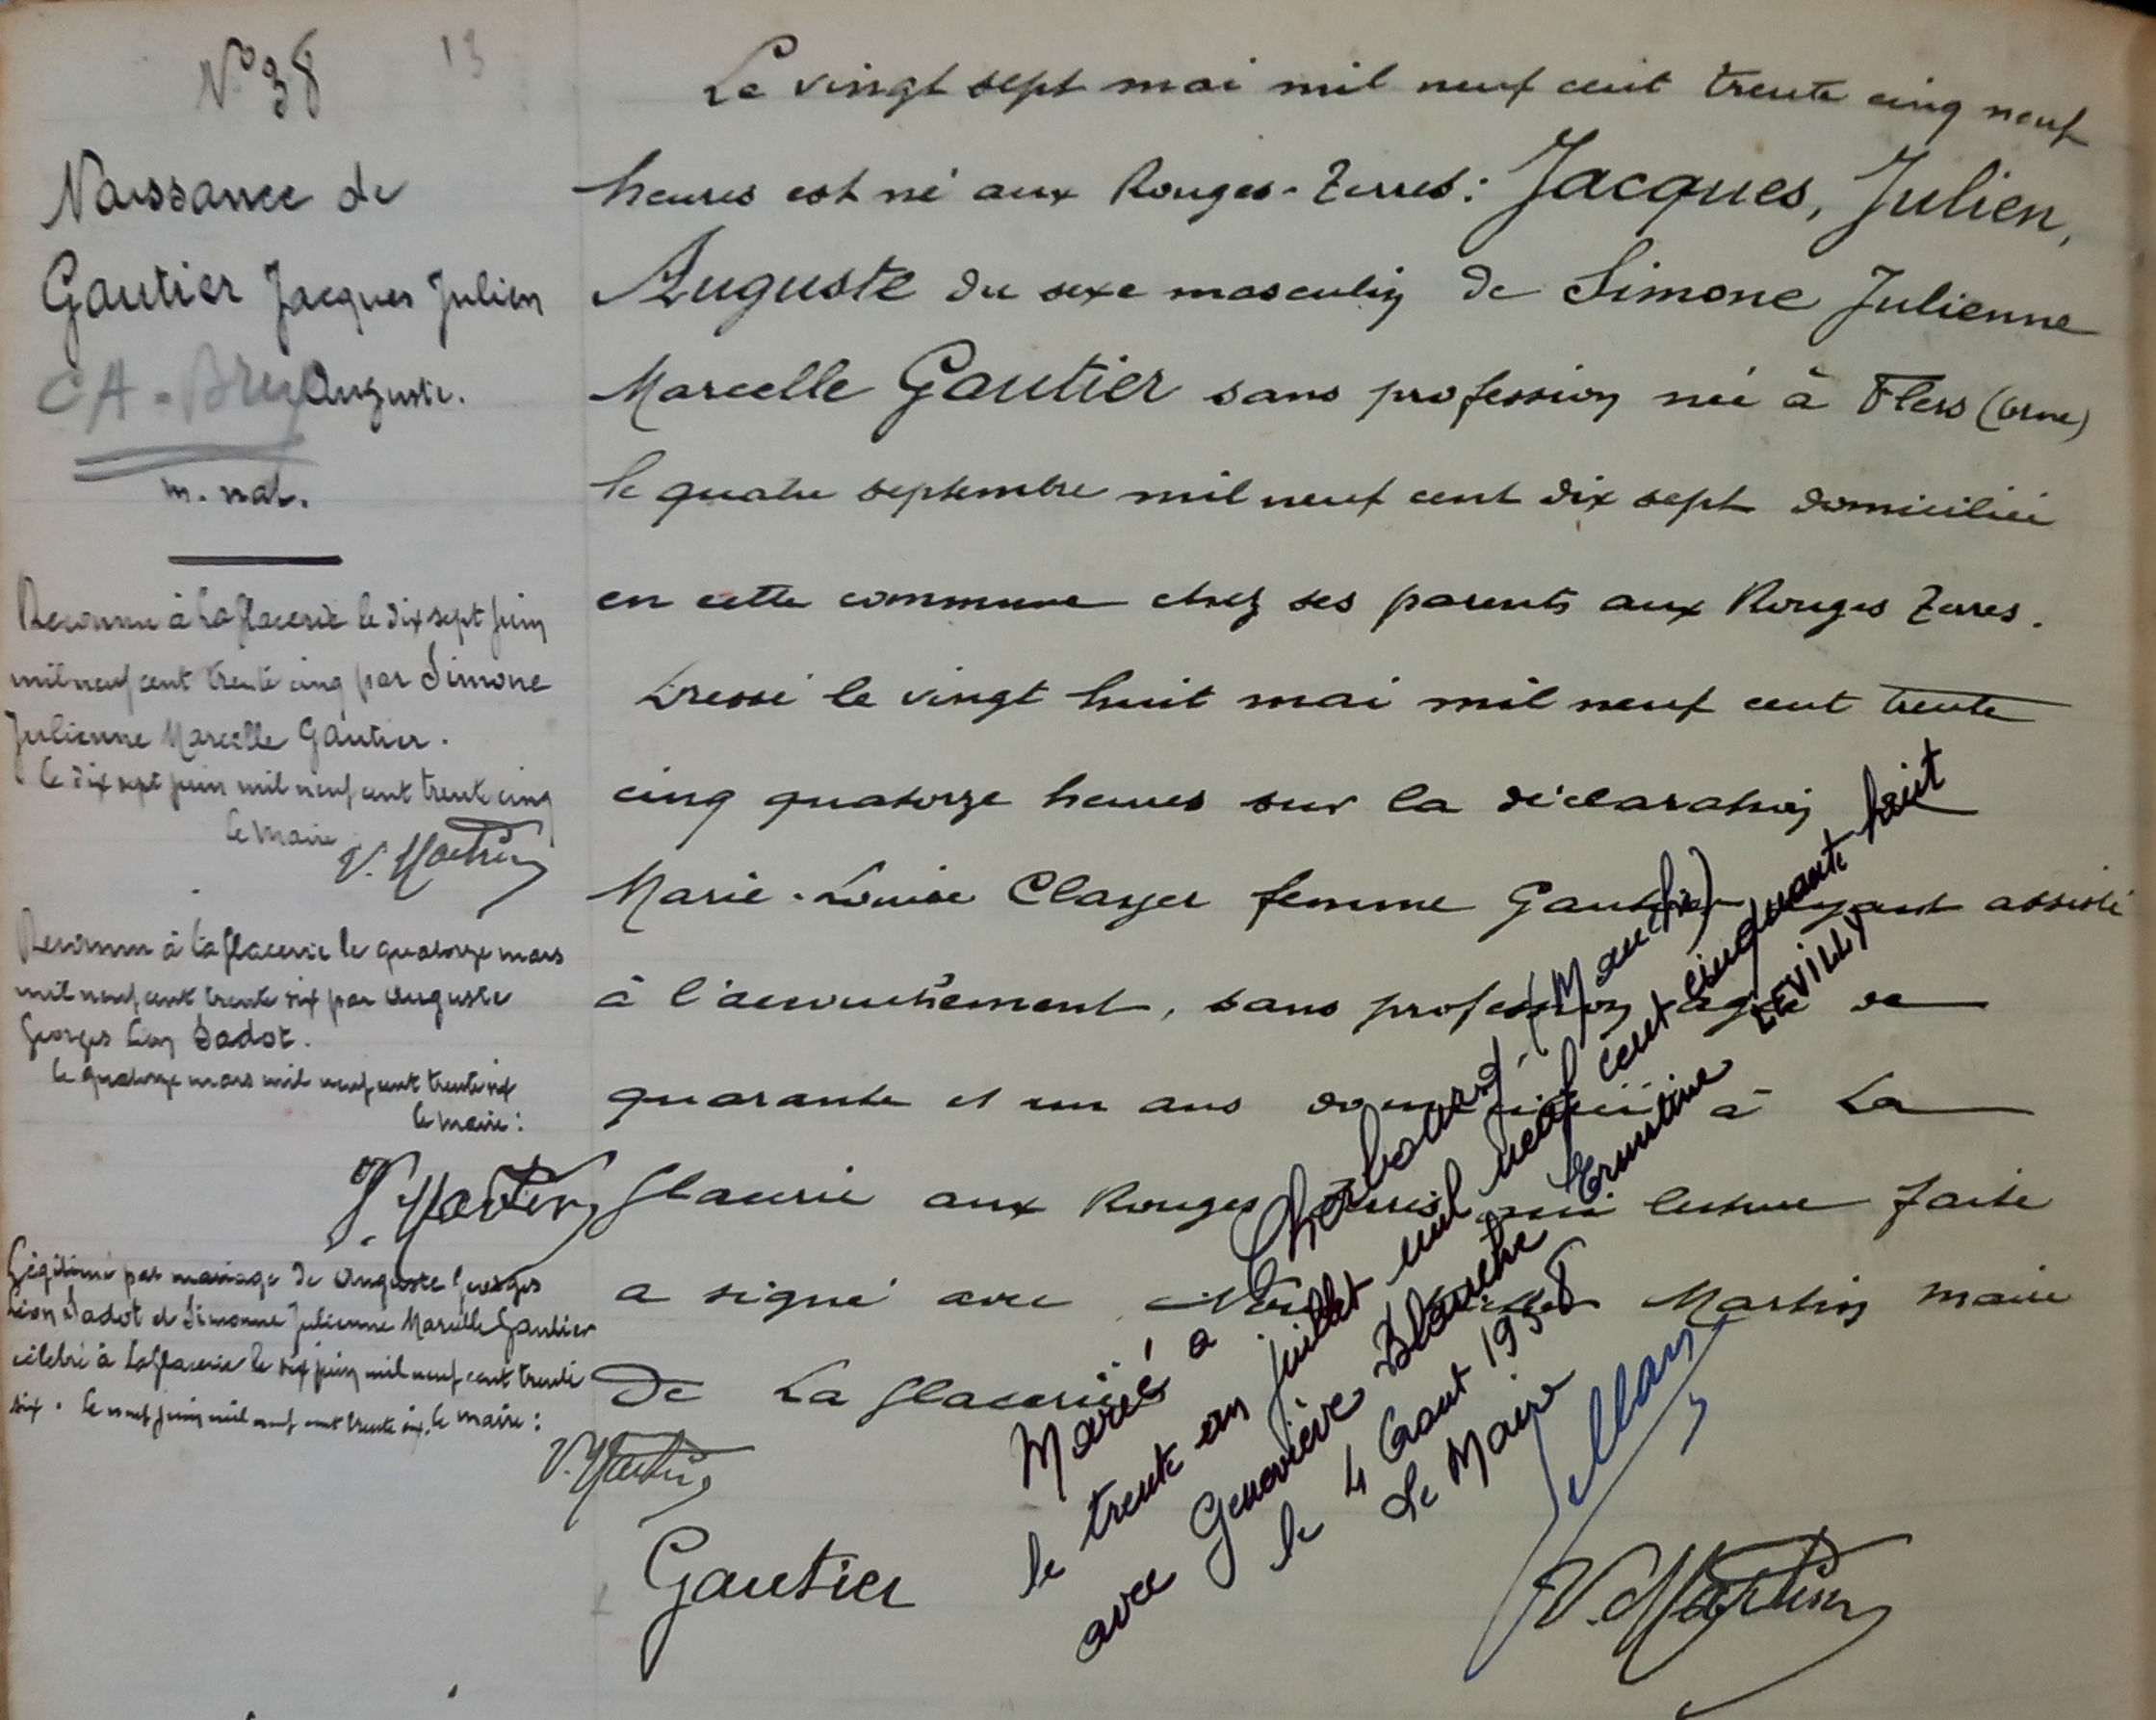 N° 38
13
Naissance de
Gautier Jacques Julien
Auguste.
m. nat.
Reconnu à La Glacerie le dix sept juin
mil neuf cent trente cinq par Simone
Julienne Marcelle Gautier.
le dix sept juin mil neuf cent trente cinq
le maire
V. Martin
Reconnu à La Glacerie le quatorze mars
mil neuf cent trente six par Auguste
Georges Léon Dadot.
le quatorze mars mil neuf cent trente six
le maire :
V. Martin
Légitimé par mariage de Auguste Georges
Léon Dadot et Simonne Julienne Marcelle Gautier
célébré à La Glacerie le six juin mil neuf cent trente
six. le neuf juin mil neuf cent trente six. le maire :
V. Martin
Le vingt sept mai mil neuf cent trente cinq neuf
heures est né aux Rouges-Terres : Jacques, Julien,
Auguste du sexe masculin de Simone Julienne
Marcelle Gautier sans profession née à Flers (Orne)
le quatre septembre mil neuf cent dix sept domiciliée
en cette commune chez ses parents aux Rouges Terres.
Dressé le vingt huit mai mil neuf cent trente
cinq quatorze heures sur la déclaration
Marie-Louise femme Gautier ayant assisté
à l'accouchement, sans profession âgée de
quarante et un ans domiciliée à La
Glacerie aux Rouges Terres qui lecture faite
a signé avec Nous Martin maire
De La Glacerie
Gautier
V. Martin
Marié à Cherbourg (Manche)
le trente en juillet mil neuf cent cinquante huit
avec Geneviève Blanche Ernestine LEVILLY
le 4 Aout 1958
Le Maire